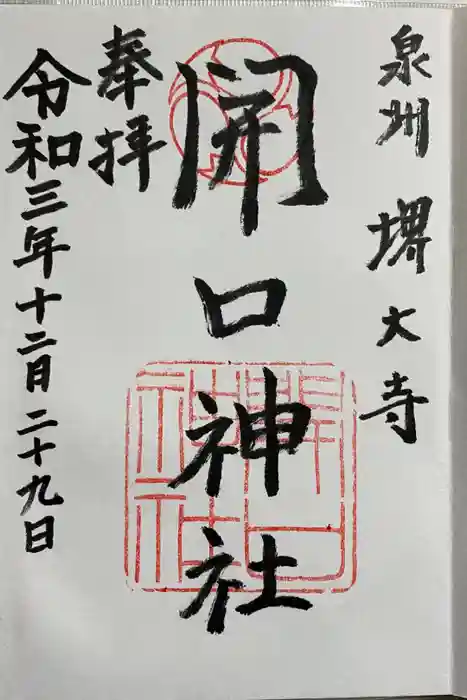 泉州 堺 大寺
開口神社
奉拝
令和三年十二月二十九日
開口神社